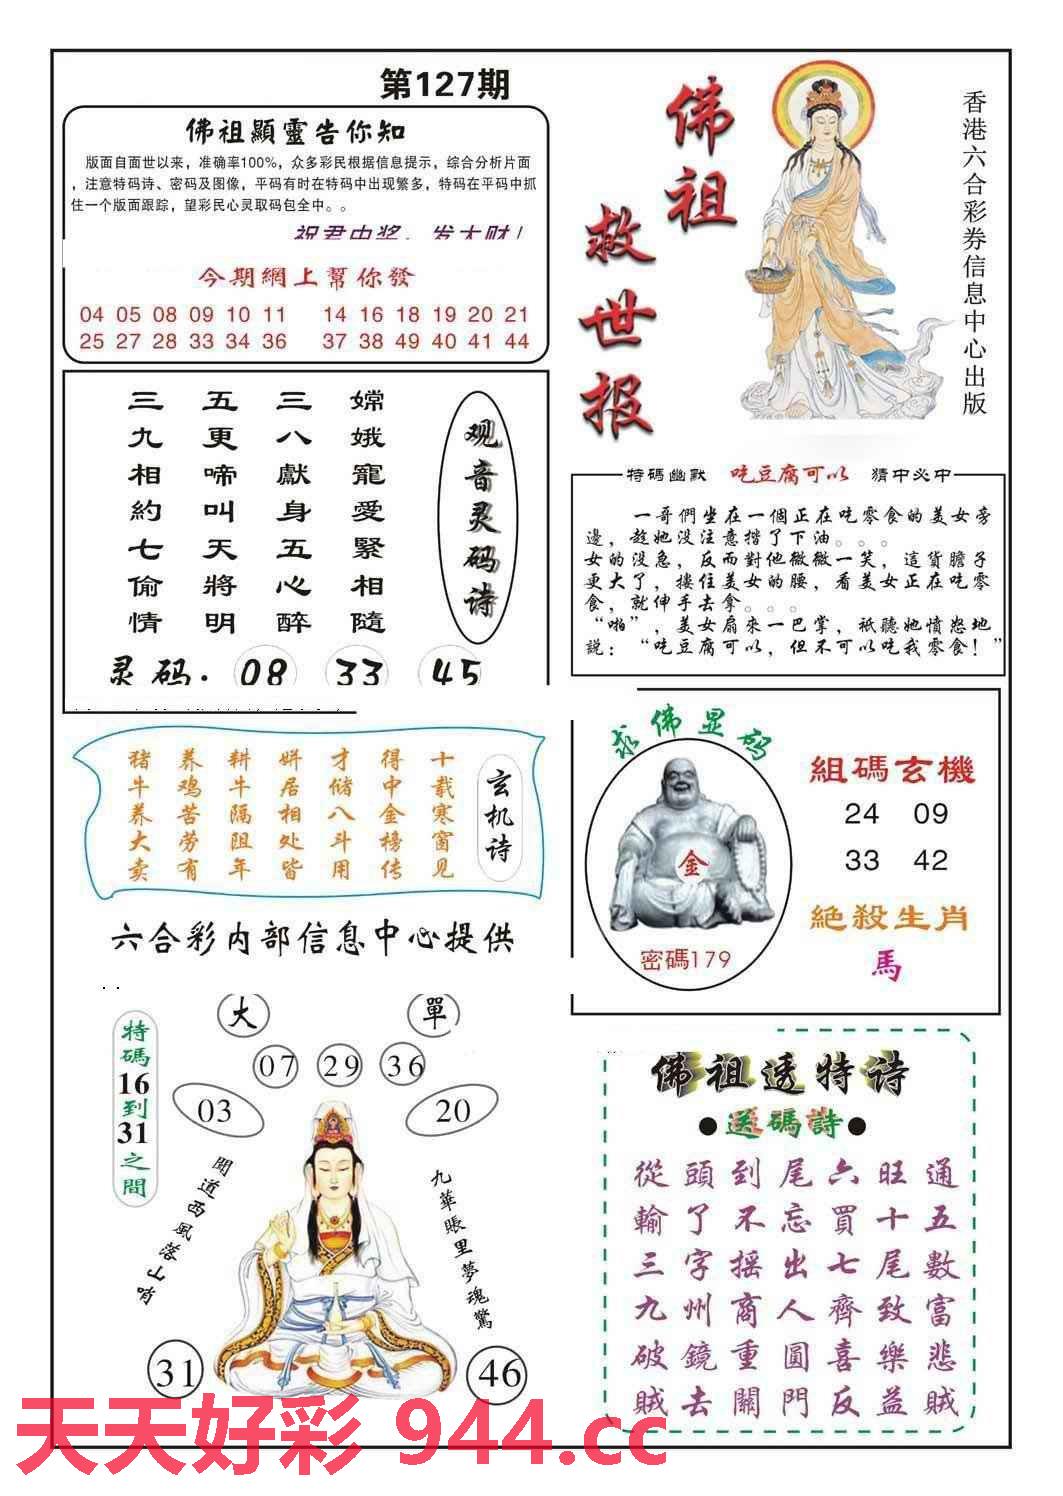 第127期
佛祖顯靈告你知
版面自面世以来，准确率100%，众多彩民根据信息提示，综合分析片面
，注意特码诗、密码及图像，平码有时在特码中出现繁多，特码在平码中抓
住一个版面跟踪，望彩民心灵取码包全中。。
祝君中奖，发大财！
今期網上幫你發
04 05 08 09 10 11 14 16 18 19 20 21
25 27 28 33 34 36 37 38 49 40 41 44
佛祖
救世报
香港六合彩券信息中心出版
观音灵码诗
嫦娥寵愛緊相隨
三八獻身五心醉
五更啼叫天將明
三九相約七偷情
灵码：08 33 45
特碼幽默 吃豆腐可以 猜中必中
一哥們坐在一個正在吃零食的美女旁
邊，趁她没注意揩了下油。。。
女的没急，反而對他微微一笑，這貨膽子
更大了，摟住美女的腰，看美女正在吃零
食，就伸手去拿。。。
“啪”，美女扇來一巴掌，衹聽她憤怒地
説：“吃豆腐可以，但不可以吃我零食！”
玄机诗
十载寒窗见
得中金榜传
才储八斗用
姘居相处皆
耕牛隔阻年
养鸡苦劳有
猪牛养大卖
六合彩内部信息中心提供
求佛显码
金
密碼179
組碼玄機
24 09
33 42
絕殺生肖
馬
特碼16到31之間
大 單
07 29 36
03 20
聞道西風落山哨
九華賬里夢魂驚
31 46
佛祖透特诗
●送碼詩●
從頭到尾六旺通
輸了不忘買十五
三字摇出七尾數
九州商人齊致富
破鏡重圓喜樂悲
賊去關門反益賊
天天好彩 944.cc